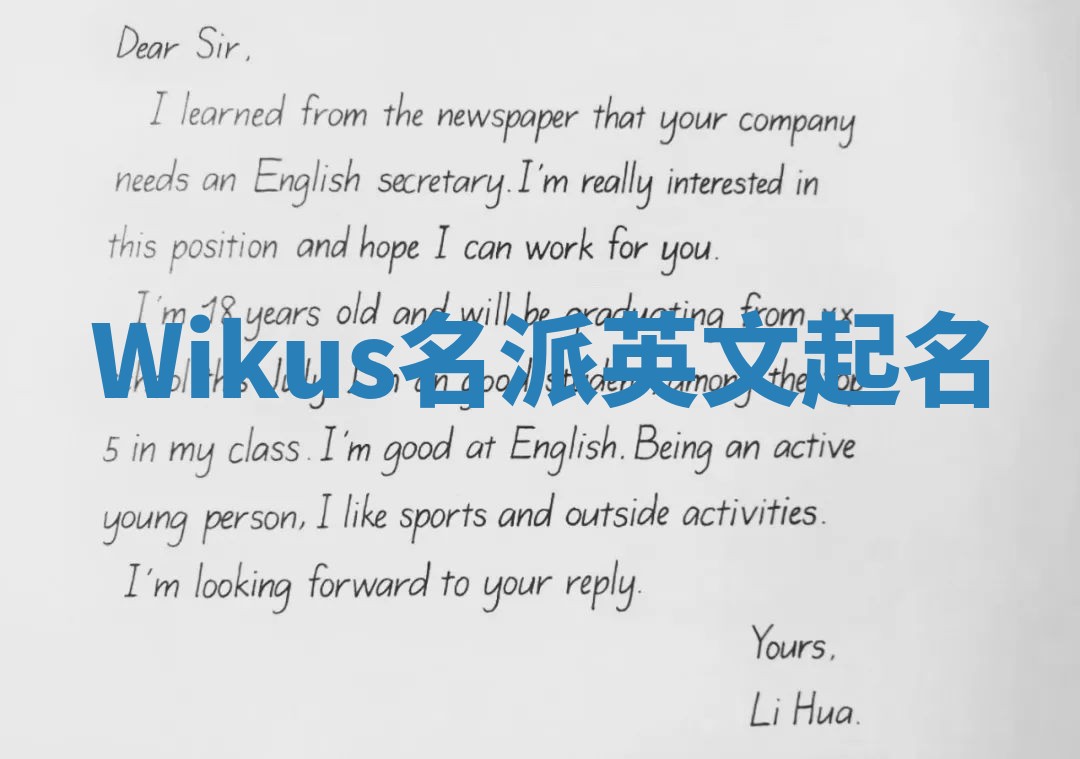 Dear Sir,
I learned from the newspaper that your company
needs an English secretary. I'm really interested in
this position and hope I can work for you.
I'm 18 years old and will be graduating from xx
Wikus名派英文起名
this July. I'm an good student, among the top
5 in my class. I'm good at English. Being an active
young person, I like sports and outside activities.
I'm looking forward to your reply.
Yours,
Li Hua.